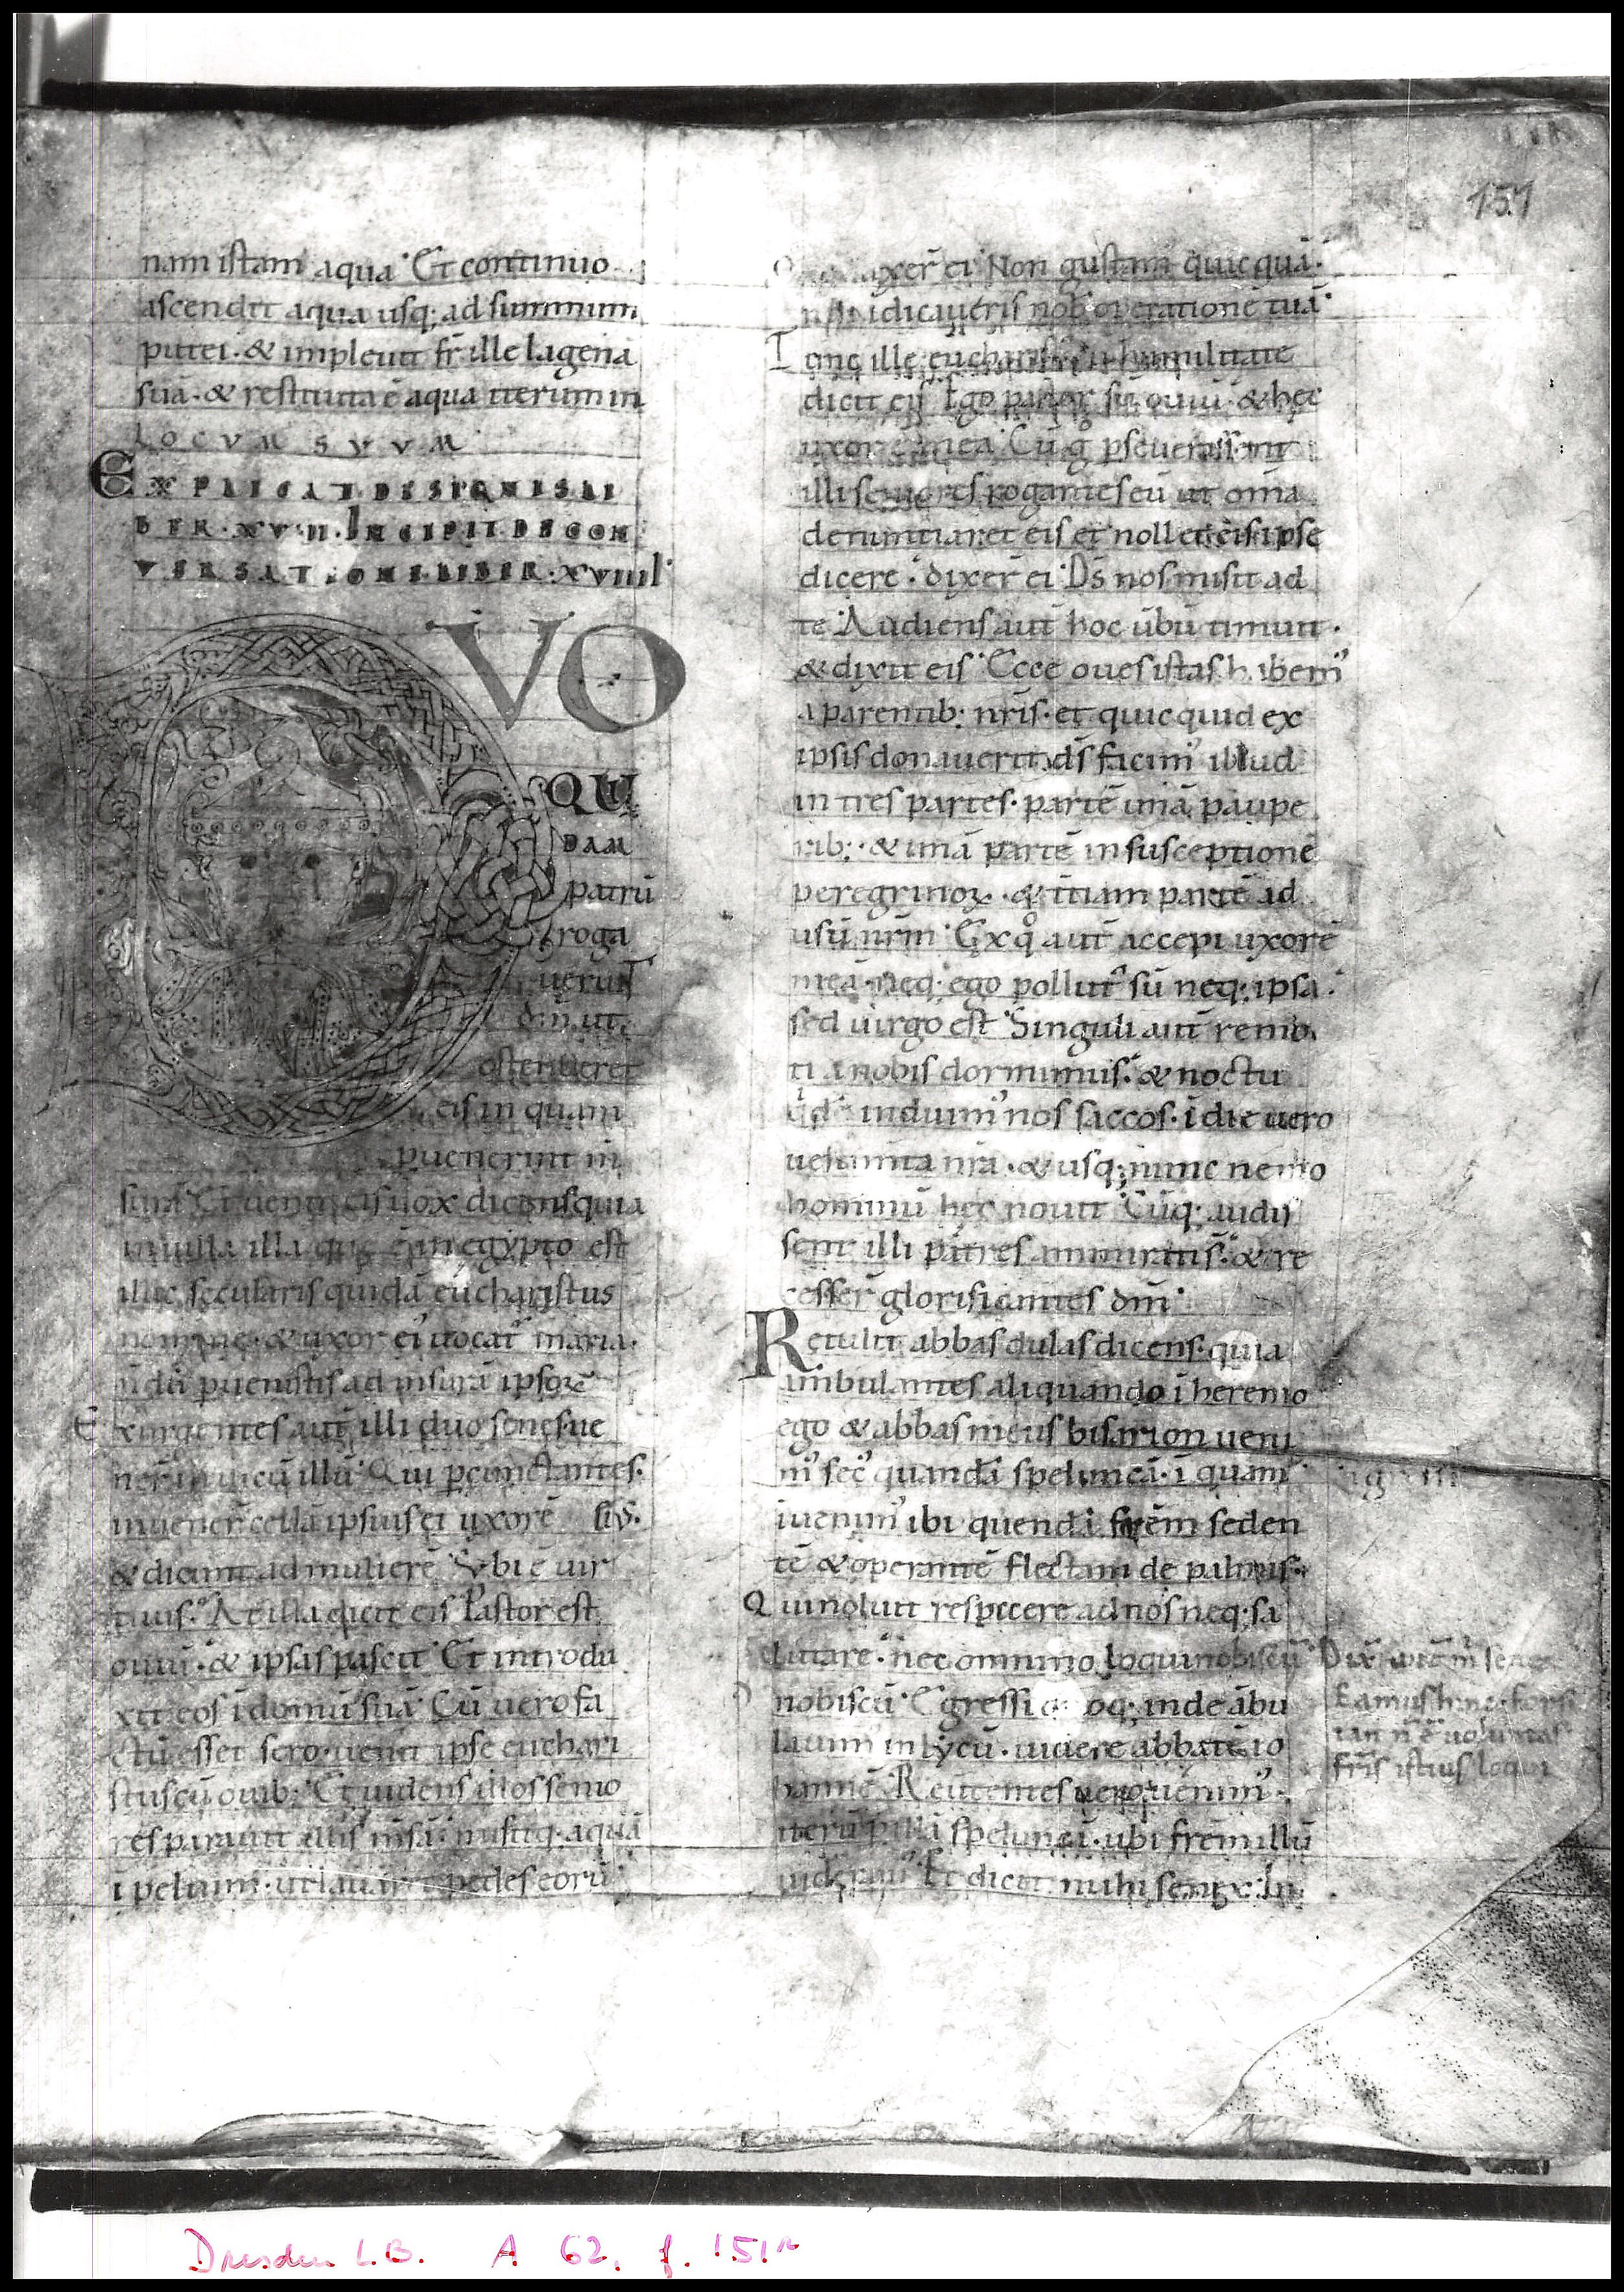 151
nam istam aqua. Et continuo
ascendit aqua usq; ad summum
putei. & impleuit fr̄ ille lagena
suā. & restituta ē aqua iterum in
LOCVM SVVM
EXPLICAT DE SIGNIS LI
BER. XVII. INCIPIT DE CON
VERSATIONE LIBER. XVIIII
VO
QU
DAM
patrū
roga
uerunt
dn̄m ut
ostenderet
eis in quam
puenerint m̄
surā Et uenit eis uox dicens quia
in uilla illa que ē in egypto est
illic secularis quidā eucharistus
nomine. & uxor ei' uocat' maria.
ndū puenistis ad msurā ipsoꝝ
Exurgentes aut illi duo senes ue
ner in uicū illū. Qui pcunctantes.
inuener̄ cellā ipsius et uxorē
& dicunt ad mulierē Vbi ē uir
tuus. At illa dicit eis Pastor est
ouiū. & ipsas pascit Et introdu
xit eos i domū suā. Cū uero fa
ctū esset sero. uenit ipse euchari
stus cū ouib; Et uidens illos senio
res parauit illis msā. misitq. aquā
i peluim. ut lauaret pedes eorū
dixer̄ ei Non gustam quicquā.
indicaueris nob operationē tuā.
Tunc ille eucharistus cū humilitate
dicit eis Ego pastor sū ouiū. & hec
uxor ē mea Cū g pseuerassent
illi seniores rogantes eū ut omīa
denuntiaret eis et nollet eis ipse
dicere. dixer̄ ei Ds nos misit ad
te Audiens aut hoc ūbū timuit.
& dixit eis Ecce oues istas habem'
a parentib; nr̄is. et quicquid ex
ipsis donauerit ds facim' illud
in tres partes. partē unā paupe
rib;. & unā partē in susceptionē
peregrinoꝝ. & tciam partē ad
usū nr̄m Ex q̊ aut accepi uxorē
meā. neq; ego pollut' sū neq; ipsa.
sed uirgo est Singuli aut remo
ti a nobis dormimus. & noctu
qd induim' nos saccos. i die uero
uestimta nr̄a. & usq; nunc nemo
hominū hec nouit Cūq; audis
sent illi patres ammirati s. & re
cesser̄ glorificantes dn̄m
Retulit abbas dulas dicens. quia
ambulantes aliquando i heremo
ego & abbas meus bisarion ueni
m' sec' quandā speluncā. i quam
iuenim' ibi quendā frēm seden
tē & operantē flectam de palmis.
Qui noluit respicere ad nos neq; sa
lutare. nec omnino loqui nobiscū
nobiscū Egressi oq; inde abu
lauim' in lycū. uidere abbatē io
hannē Reuertentes uero uenim'
iterū p illā speluncā. ubi frēm illū
uideram' Et dicit mihi senex In
Dix aut m̄ senex
Eamus hinc. forsi
tan n̄ ē uoluntas
fris istius loqui
Dresden L.B. A 62, f. 151r